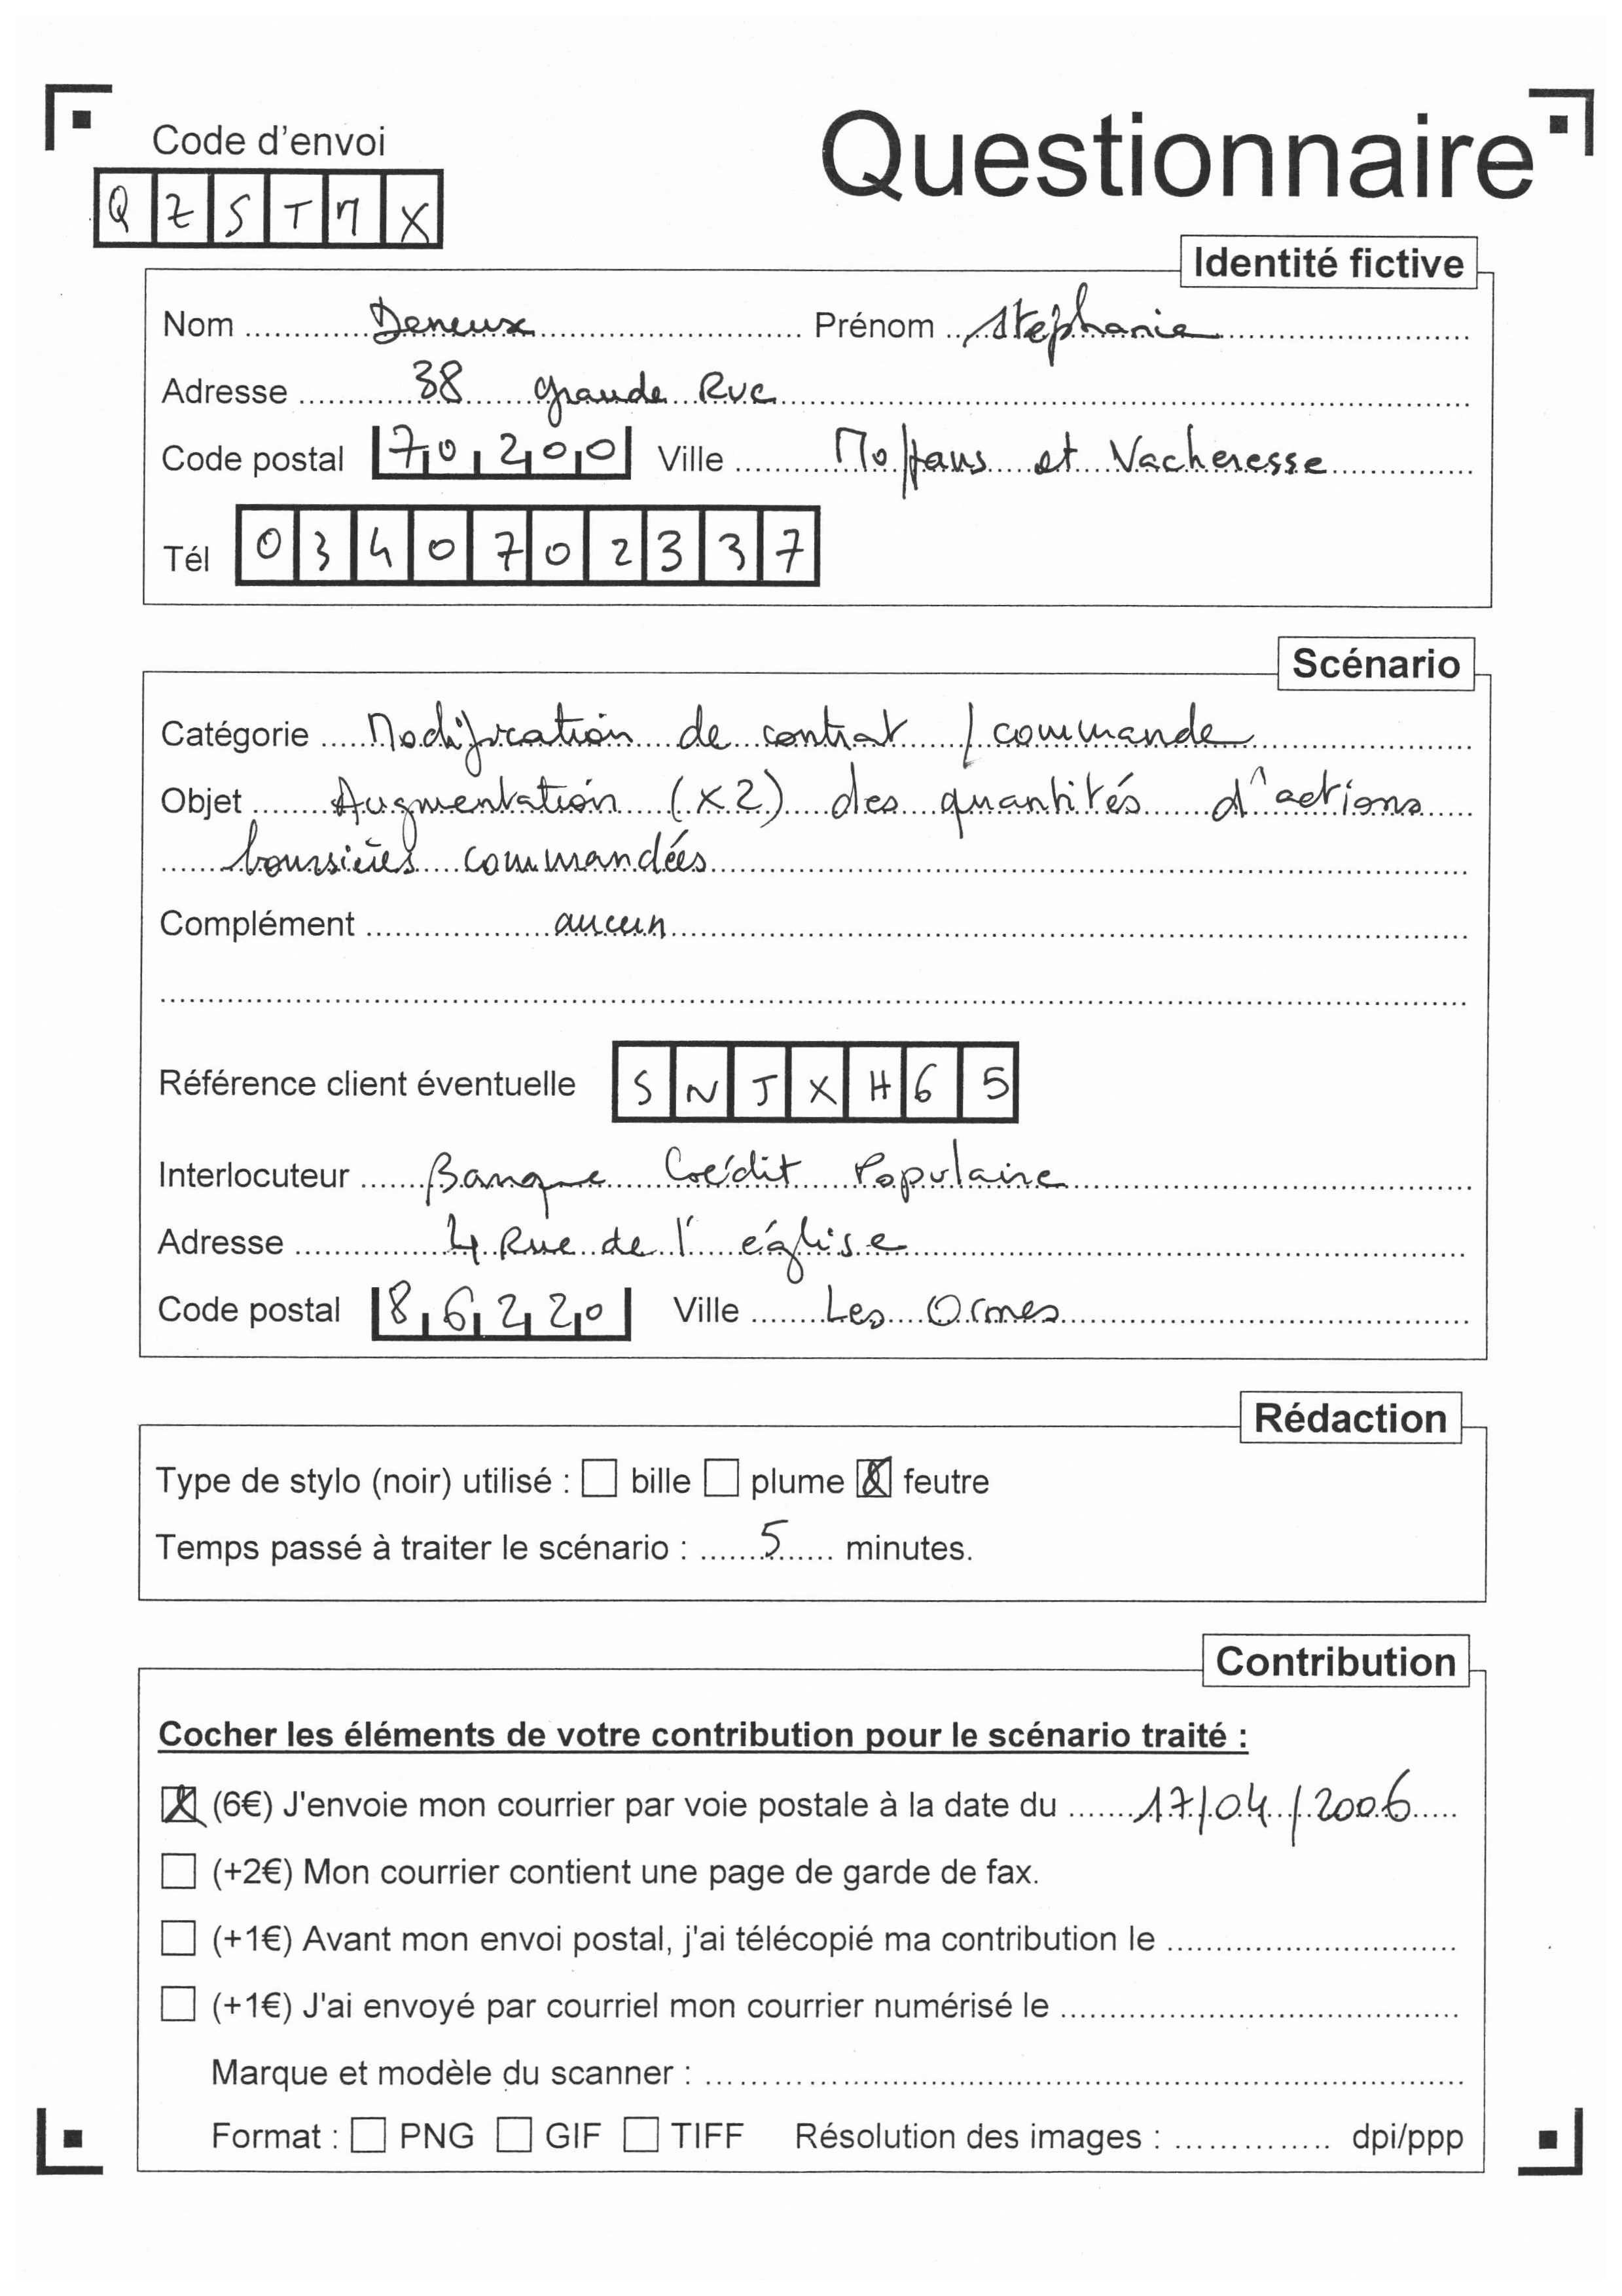 Code d'envoi
Questionnaire
Q Z S T M X
Identité fictive
Nom Deneux Prénom Stephanie
Adresse 38 grande Rue
Code postal 70200 Ville Moffans et Vacheresse
Tél 0340702337
Scénario
Catégorie Modification de contrat / commande
Objet Augmentation (x2) des quantités d'actions
boursières commandées
Complément aucun
Référence client éventuelle S N J X H 6 5
Interlocuteur Banque Crédit Populaire
Adresse 4 Rue de l'église
Code postal 86220 Ville Les Ormes
Rédaction
Type de stylo (noir) utilisé : bille plume feutre
Temps passé à traiter le scénario : 5 minutes.
Contribution
Cocher les éléments de votre contribution pour le scénario traité :
(6€) J'envoie mon courrier par voie postale à la date du 17/04/2006
(+2€) Mon courrier contient une page de garde de fax.
(+1€) Avant mon envoi postal, j'ai télécopié ma contribution le
(+1€) J'ai envoyé par courriel mon courrier numérisé le
Marque et modèle du scanner :
Format : PNG GIF TIFF Résolution des images : dpi/ppp